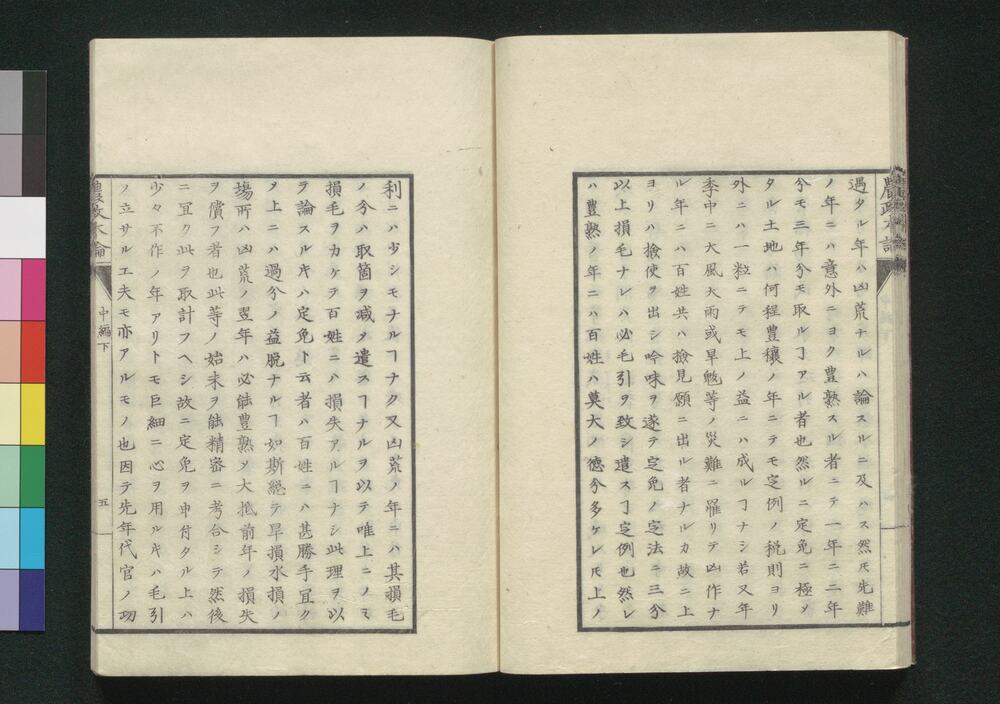 農政本論
過タル年ハ凶荒ナルハ論スルニ及ハス然𪜈先難
ノ年ニハ意外ニヨク豊熟スル者ニテ一年ニ二年
分モ三年分モ取ルヿアル者也然ルニ定免ニ極メ
タル土地ハ何程豊穰ノ年ニテモ定例ノ税則ヨリ
外ニハ一粒ニテモ上ノ益ニハ成ルヿナシ若又年
季中ニ大風大雨或旱魃等ノ災難ニ罹リテ凶作ナ
ル年ニハ百姓共ハ撿見願ニ出ル者ナルカ故ニ上
ヨリハ撿使ヲ出シ吟味ヲ遂テ定免ノ定法ニ三分
以上損毛ナレハ必毛引ヲ致シ遣スヿ定例也然レ
ハ豊熟ノ年ニハ百姓ハ莫大ノ德分多ケレ𪜈上ノ
利ニハ少シモナルヿナク又凶荒ノ年ニハ其損毛
ノ分ハ取箇ヲ減メ遣スヿナルヲ以テ唯上ニノミ
損毛ヲカケテ百姓ニハ損失アルヿナシ此理ヲ以
テ論スルキハ定免ト云者ハ百姓ニハ甚勝手宜ク
メ上ニハ過分ノ益脱ナルヿ如斯総テ旱損水損ノ
塲所ハ凶荒ノ翌年ハ必能豊熟メ大抵前年ノ損失
ヲ償フ者也此等ノ始末ヲ能精密ニ考合シテ然後
ニ宜ク此ヲ取計フヘシ故ニ定免ヲ申付タル上ハ
少々不作ノ年アリトモ巨細ニ心ヲ用ルキハ毛引
ノ立サル工夫モ亦アルモノ也因テ先年代官ノ功
農政本論
中編下
五